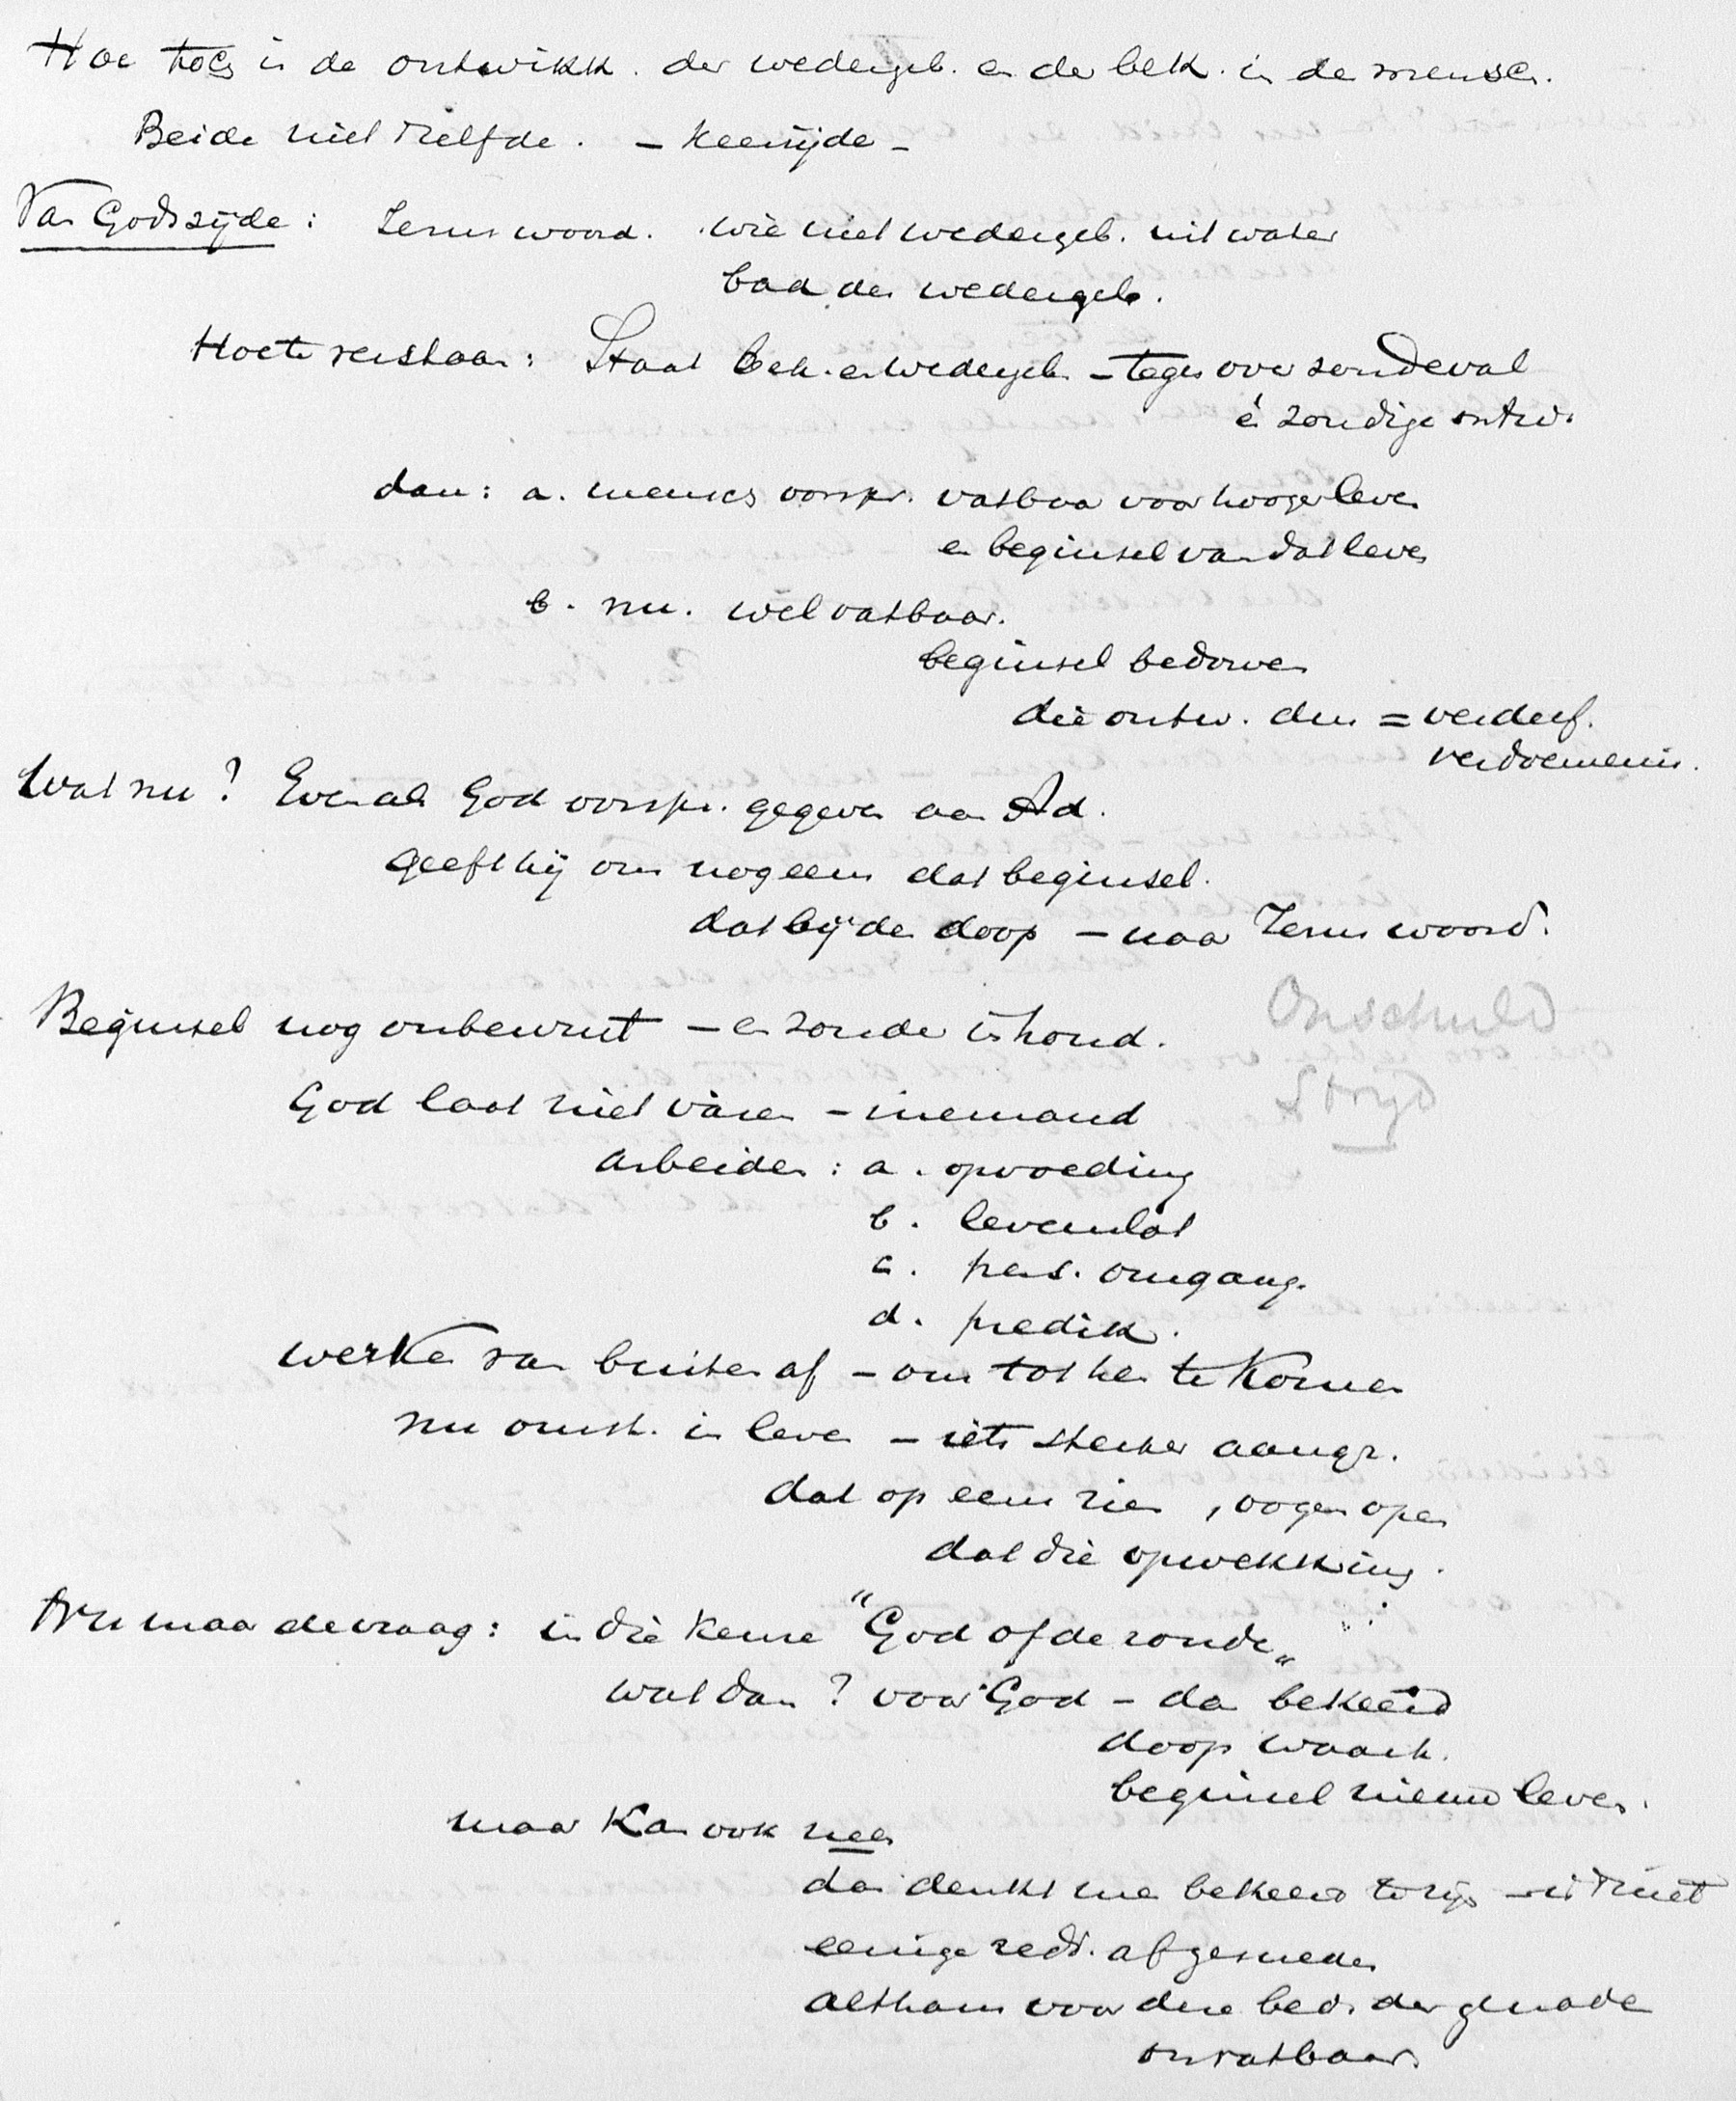 Hoe toch is de ontwikk. der wedergeb. en der bek. in de mensch.
Beide niet 'tzelfde. – keerzijde –
Van Godszijde: Jezus woord. wie niet wedergeb. uit water
bad der wedergeb.
Hoe te verstaan: Staat bek. en wedergeb – tegenover zondeval
en zondige ontw.
dan: a. mensch oorspr. vatbaar voor hooger leven
en beginsel van dat leven
b. nu. wel vatbaar.
beginsel bedorven
die ontw. dus = verderf.
verdoemenis.
Wat nu? Evenals God oorspr. gegeven aan Ad.
geeft hij ons nog eens dat beginsel.
dat bij den doop – naar Jezus woord.
Beginsel nog onbewust – en zonde is hond.
Onschuld
God laat niet varen – niemand
Strijd
arbeiden: a. opvoeding
b. levenslot
c. pers. omgang.
d. predik.
werken van buiten af – om tot hen te komen
nu omst. in leven – iets sterker aangr.
dat op eens zien, oogen open
dat die opwekking.
Nu maar de vraag: in die keuze "God of de zonde„
wat dan? voor God – dan bekeerd
doop waarh.
beginsel nieuw leven.
maar kan ook neen
dan denkt men bekeerd te zijn – is 't niet
eenige red. afgesneden
althans voor deze bed. der genade
onvatbaar.